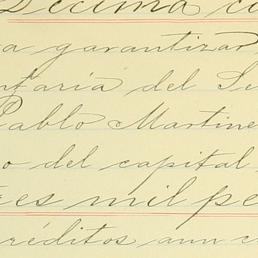 Décima c
a garantizar
ntaría del Se
Pablo Martine
o del capital
tres mil pe
créditos aun c